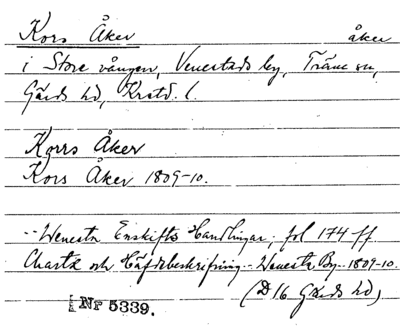 Kors Åker åker
i Store vången, Venestads by, Träne sn,
Gärds hd, Krstd. l.
Korrs Åker
Kors Åker 1809-10.
Wenesta Enskiftes Handlingar, fol 174 ff
Charta och Häfdebeskrifning Wenesta By 1809-10.
(D 16 Gärds hd)
Nr 5339.